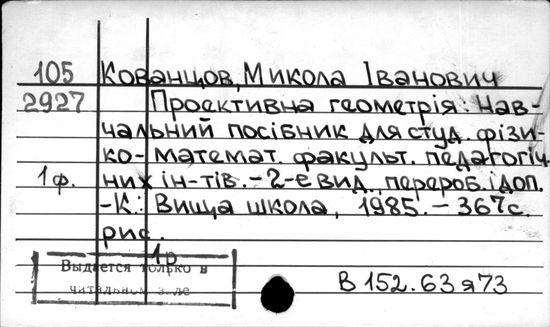 105 Кованцов, Микола Іванович
2927 Проективна геометрія: Нав-
чальний посібник для студ. фізи-
ко-математ. факульт. педагогіч-
1 ф. них ін-тів. - 2-е вид., перероб. і доп.
-К.: Вища школа, 1985. - 367 с.
рис.
1р
Выдается только в
читальном зале
В 152.63 я 73